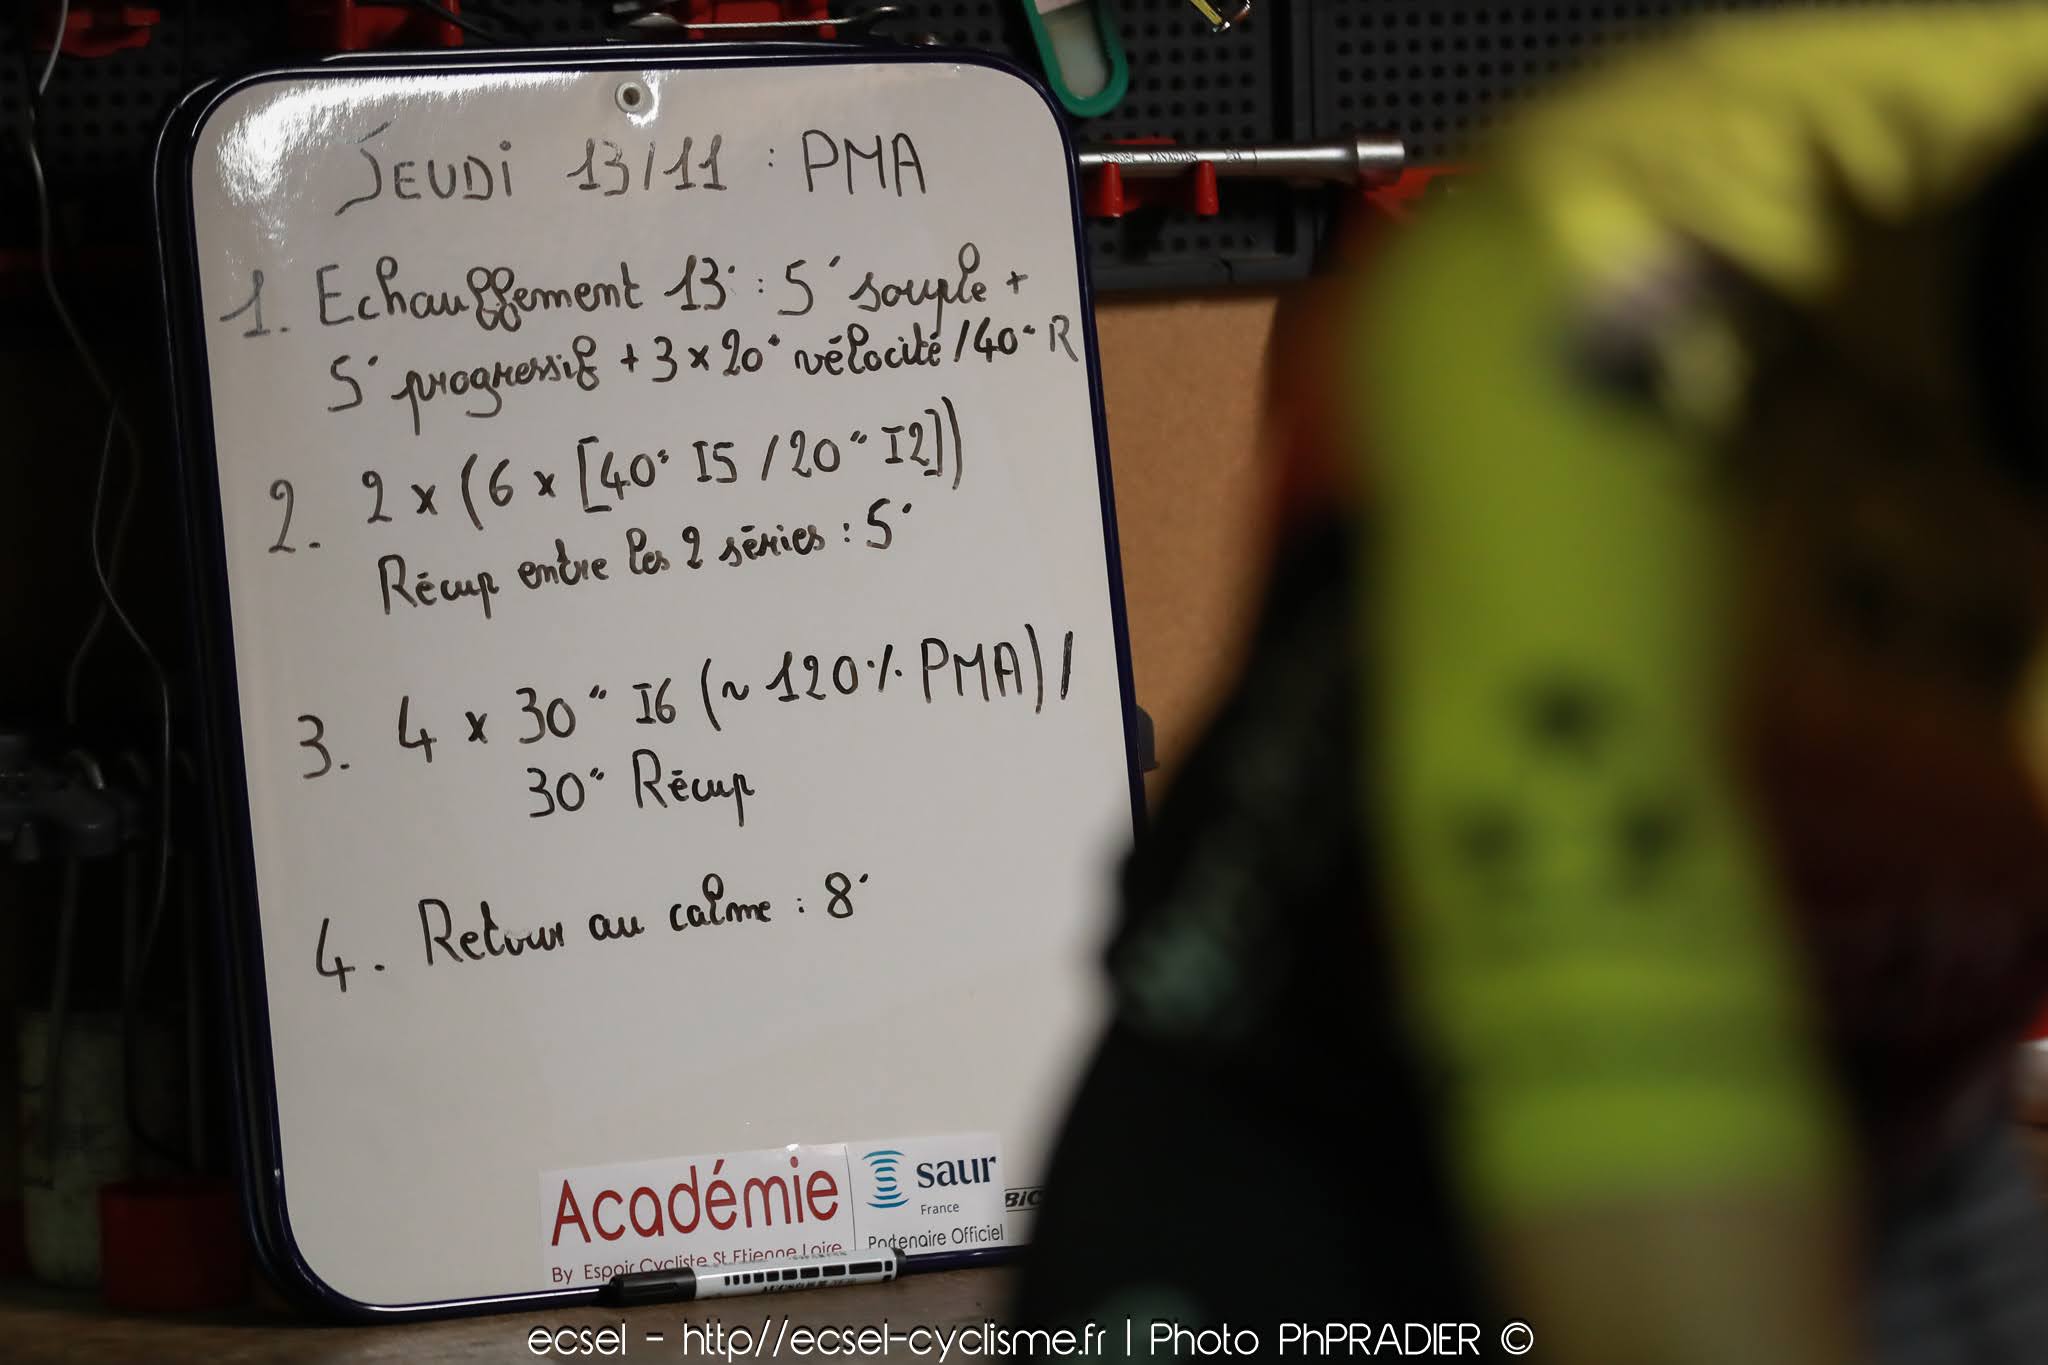 JEUDi 13/11 : PMA
1. Echauffement 13' : 5' souple +
5' progressif + 3 x 20" vélocité /40" R
2. 2 x (6 x [40" I5 /20" I2])
Récup entre les 2 séries : 5'
3. 4 x 30" I6 (~ 120% PMA) /
30" Récup
4. Retour au calme : 8'
Académie
By Espoir Cycliste St Etienne Loire
saur
France
Partenaire Officiel
BIC
ecsel - http//ecsel-cyclisme.fr | Photo PhPRADIER ©